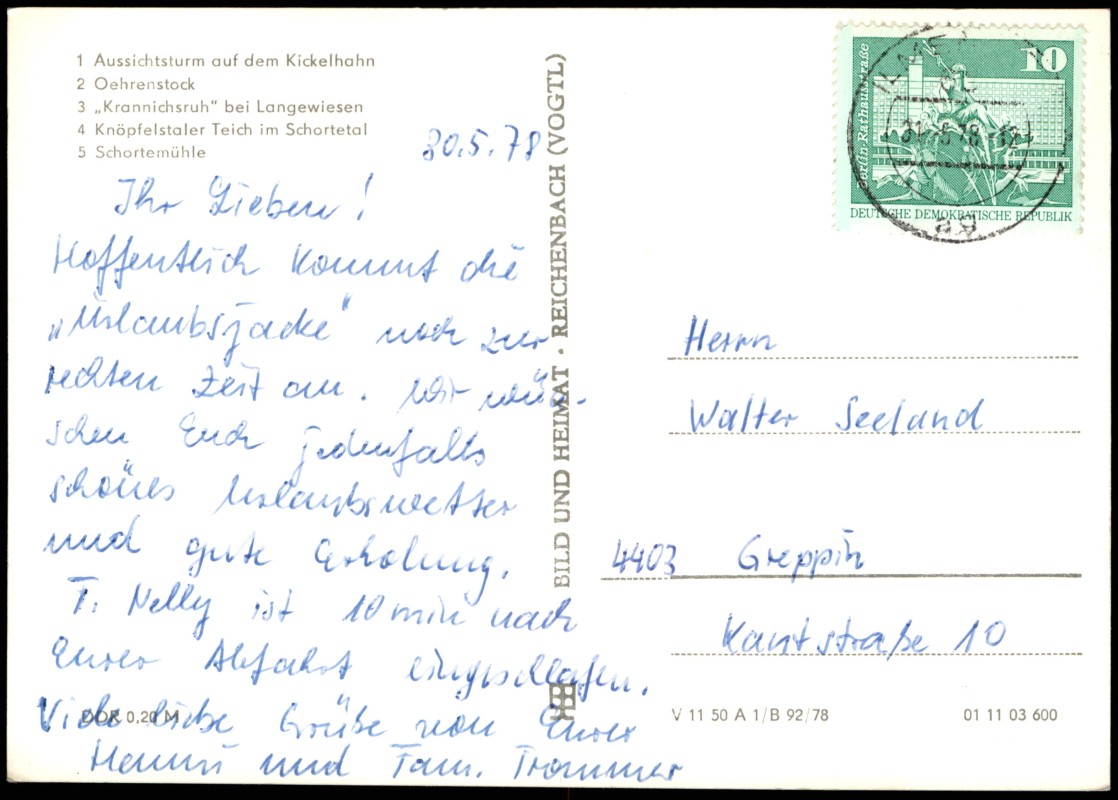 1 Aussichtsturm auf dem Kickelhahn
2 Oehrenstock
3 „Krannichsruh“ bei Langewiesen
4 Knöpfelstaler Teich im Schortetal
5 Schortemühle
30.5.78
Ihr Lieben!
Hoffentlich kommt die
„Urlaubsjacke“ noch zur
rechten Zeit an. Wir wün-
schen Euch jedenfalls
schönes Urlaubswetter
und gute Erholung.
T. Nelly ist 10 min nach
Eurer Abfahrt eingeschlafen.
Viele liebe Grüße von Eurer
und Fam. Trommer
DDR 0,20 M
BILD UND HEIMAT · REICHENBACH (VOGTL)
Berlin-Rathausstraße
10
DEUTSCHE DEMOKRATISCHE REPUBLIK
Herrn
Walter Seeland
4403 Greppin
Kantstraße 10
V 11 50 A 1/B 92/78
01 11 03 600